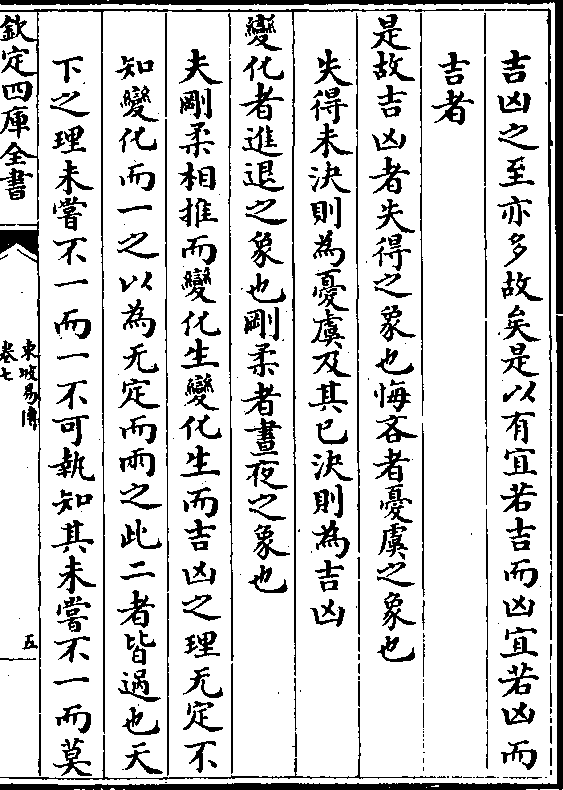 吉凶之至亦多故矣是以有宜若吉而凶宜若凶而
吉者
是故吉凶者失得之象也悔吝者憂虞之象也
失得未決則為憂虞及其已決則為吉凶
變化者進退之象也剛柔者晝夜之象也
夫剛柔相推而變化生變化生而吉凶之理无定不
知變化而一之以為无定而兩之此二者皆過也天
下之理未嘗不一而一不可執知其未嘗不一而莫
欽定四庫全書
東坡易傳
卷七
五